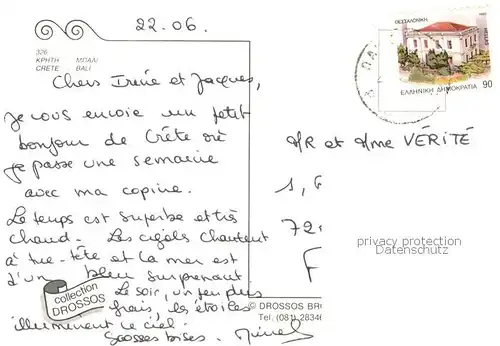 22.06.
326
ΚΡΗΤΗ ΜΠΑΛΙ
CRETE BALI
Chers Irène et Jacques,
Je vous envoie un petit
bonjour de Crète où
je passe une semaine
avec ma copine.
Le temps est superbe et très
chaud. Les cigales chantent
à tue-tête et la mer est
d'un bleu surprenant
Le soir, un peu plus
frais, les étoiles
illuminent le ciel.
Grosses bises.
collection
DROSSOS
© DROSSOS BR
Tel. (081) 28346
ΘΕΣΣΑΛΟΝΙΚΗ
HELLAS
ΕΛΛΗΝΙΚΗ ΔΗΜΟΚΡΑΤΙΑ 90
MR et Mme VÉRITÉ
1,
72
F
privacy protection
Datenschutz